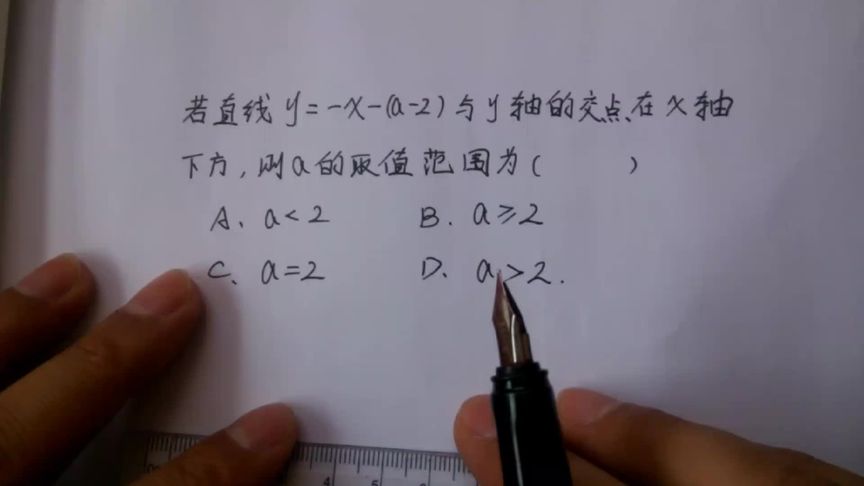 若直线 y=-x-(a-2)与y轴的交点在x轴
下方,则a的取值范围为( )
A、a<2 B. a≥2
C、a=2 D、a>2.
4 5 6